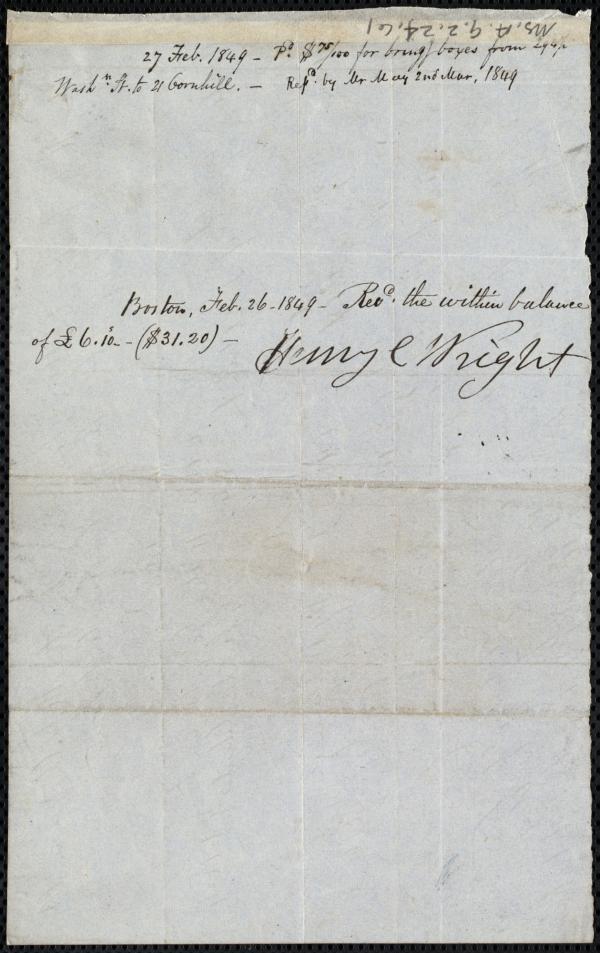 Ms. A. 9.2.24.61
27 Feb. 1849 - Pd. $ 75/100 for bringg boxes from
Washn. St. to 21 Cornhill. - by Mr May 2nd Mar. 1849
Boston, Feb. 26 - 1849 - Recd. the within balance
of £6.10 - ($31.20) -
Henry C Wright